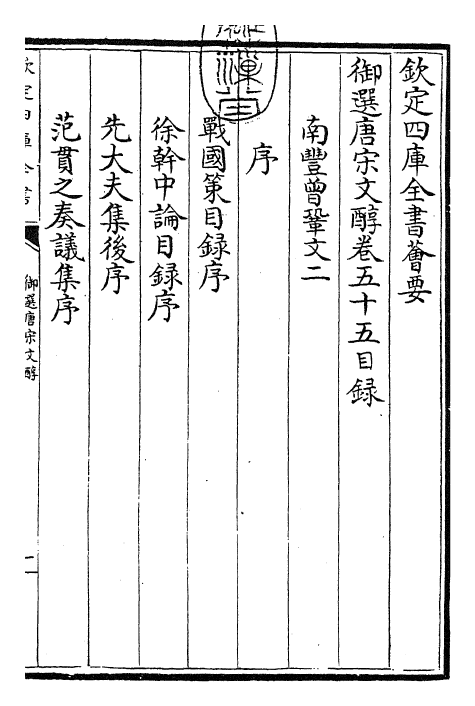 欽定四庫全書薈要
御選唐宋文醇卷五十五目録
南豐曾鞏文二
序
戰國策目録序
徐幹中論目録序
先大夫集後序
范貫之奏議集序
欽定四庫全書
御選唐宋文醇